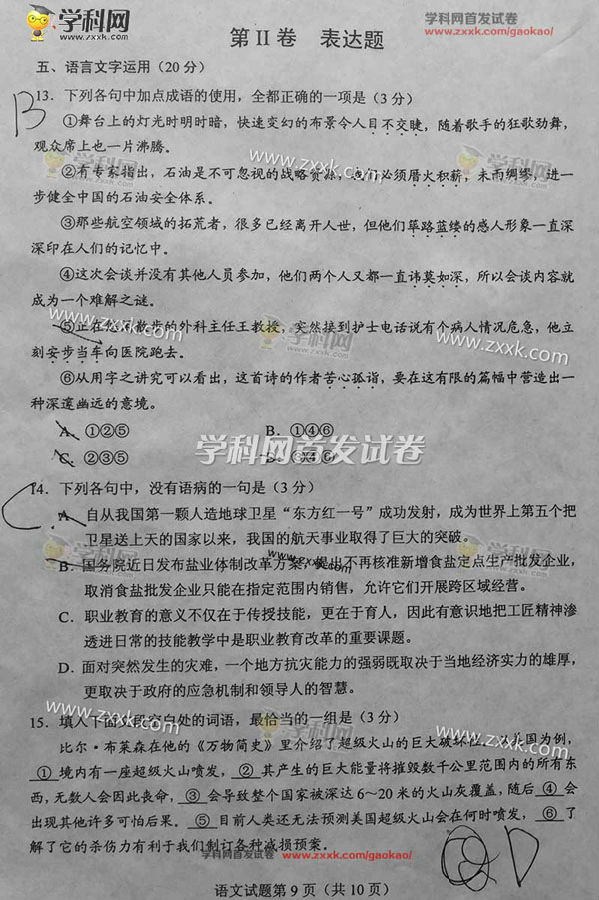 学科网
www.zxxk.com
学科网首发试卷
www.zxxk.com/gaokao/
第Ⅱ卷 表达题
五、语言文字运用（20分）
B
13．下列各句中加点成语的使用，全都正确的一项是（3分）
①舞台上的灯光时明时暗，快速变幻的布景令人目不交睫，随着歌手的狂歌劲舞，
观众席上也一片沸腾。
②有专家指出，石油是不可忽视的战略资源，我们必须厝火积薪，未雨绸缪，进一
步健全中国的石油安全体系。
③那些航空领域的拓荒者，很多已经离开人世，但他们筚路蓝缕的感人形象一直深
深印在人们的记忆中。
④这次会谈并没有其他人员参加，他们两个人又都一直讳莫如深，所以会谈内容就
成为一个难解之谜。
⑤正在悠闲散步的外科主任王教授，突然接到护士电话说有个病人情况危急，他立
刻安步当车向医院跑去。
⑥从用字之讲究可以看出，这首诗的作者苦心孤诣，要在这有限的篇幅中营造出一
种深邃幽远的意境。
A．①②⑤ B．①④⑥
C．②③⑤ D．③④⑥
学科网首发试卷
C
14．下列各句中，没有语病的一句是（3分）
A．自从我国第一颗人造地球卫星“东方红一号”成功发射，成为世界上第五个把
卫星送上天的国家以来，我国的航天事业取得了巨大的突破。
B．国务院近日发布盐业体制改革方案，提出不再核准新增食盐定点生产批发企业，
取消食盐批发企业只能在指定范围内销售，允许它们开展跨区域经营。
C．职业教育的意义不仅在于传授技能，更在于育人，因此有意识地把工匠精神渗
透进日常的技能教学中是职业教育改革的重要课题。
D．面对突然发生的灾难，一个地方抗灾能力的强弱既取决于当地经济实力的雄厚，
更取决于政府的应急机制和领导人的智慧。
15．填入下面文段空白处的词语，最恰当的一组是（3分）
比尔·布莱森在他的《万物简史》里介绍了超级火山的巨大破坏性。以美国为例，
① 境内有一座超级火山喷发，② 其产生的巨大能量将摧毁数千公里范围内的所有东
西，无数人会因此丧命，③ 会导致整个国家被深达6～20米的火山灰覆盖，随后 ④ 会
出现其他许多可怕后果。⑤ 目前人类还无法预测美国超级火山会在何时喷发，⑥ 了
解了它的杀伤力有利于我们制订各种减损预案。
D
学科网首发试卷 www.zxxk.com/gaokao/
语文试题第9页（共10页）